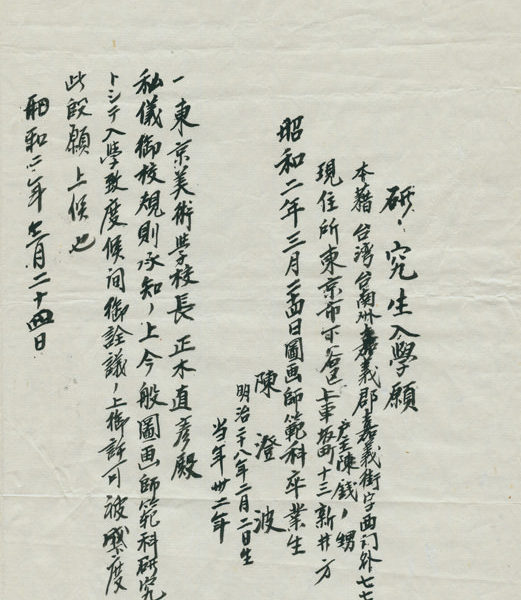 研究生入學願
本籍 台湾台南州嘉義郡嘉義街字西门外七七
戸主陳錢ノ甥
現住所東京市下谷區上車坂町十三新井方
昭和二年三月二四日圖画師範科卒業生
陳澄波
明治二十八年二月二日生
当年卅二年
一 東京美術学校長 正木直彦殿
私儀御校規則承知ノ上今般圖画師範科研究
トシテ入學致度候间御詮議ノ上御許可被
度
此段願上候也
昭和二年 月二十四日